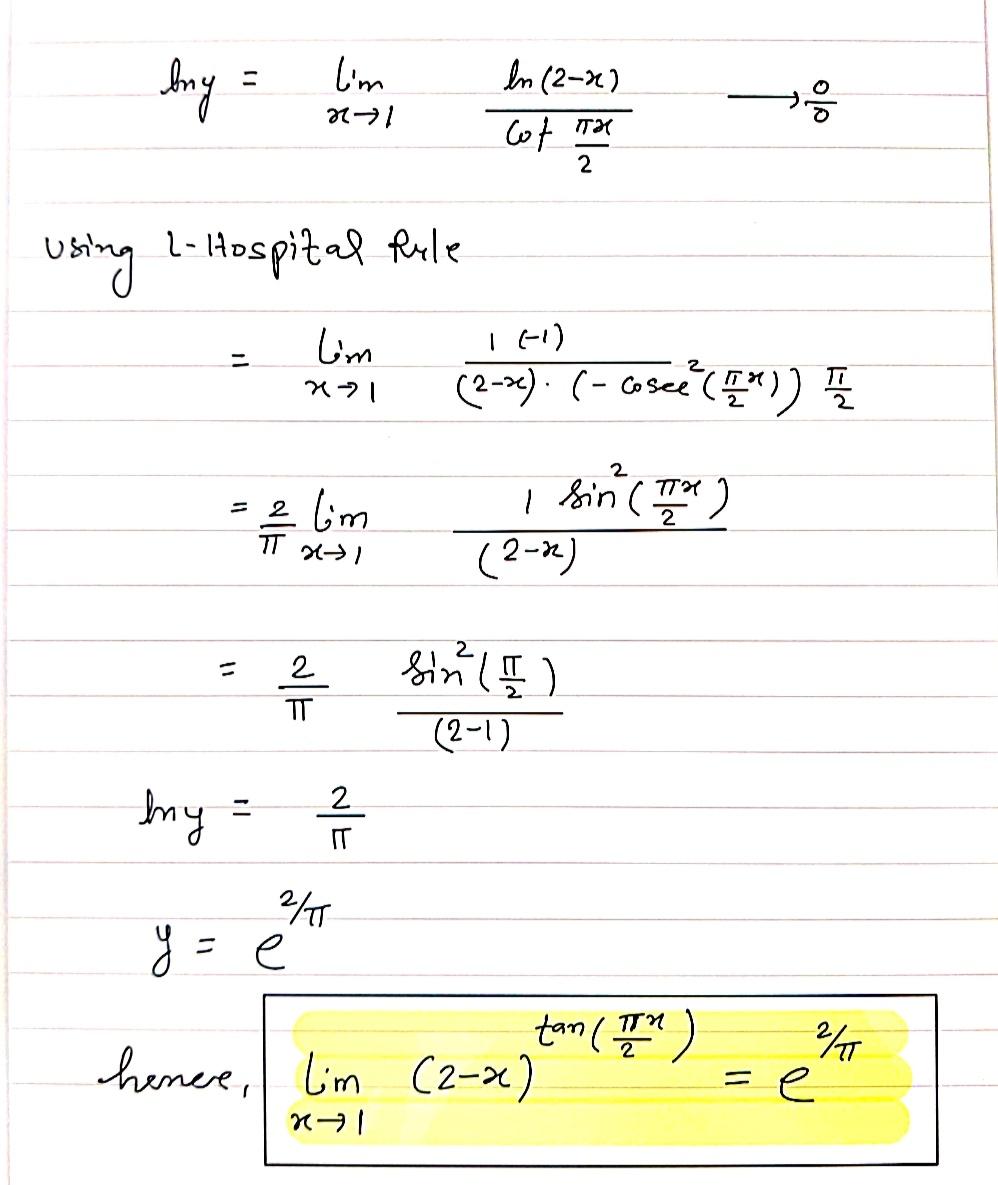 lny = lim x→1 ln(2-x) / cot πx/2 → 0/0
using L-Hospital Rule
= lim x→1 1 (-1) / (2-x) · (- cosec²(π/2 x)) π/2
= 2/π lim x→1 1 sin²(πx/2) / (2-x)
= 2/π sin²(π/2) / (2-1)
lny = 2/π
y = e^(2/π)
hence, lim x→1 (2-x)^tan(πx/2) = e^(2/π)